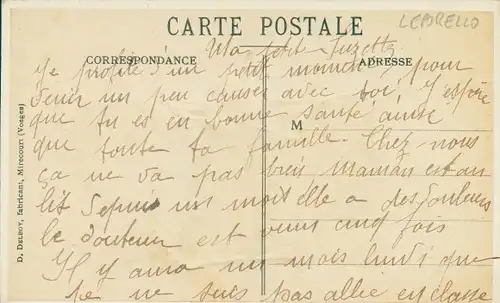 CARTE POSTALE
LEPRELLO
CORRESPONDANCE
ADRESSE
Ma petit Suzette
Je profite d'un petit moment pour
venir un peu causer avec toi, J'espère
que tu es en bonne santé ainsi
M
que toute ta famille. Chez nous
ça ne va pas bien maman est au
lit depuis un mois elle a des douleurs
le docteur est venu cinq fois
Il y aura un mois lundi que
je ne suis pas allée en classe
D. DELBOY, fabricant, Mirecourt (Vosges)